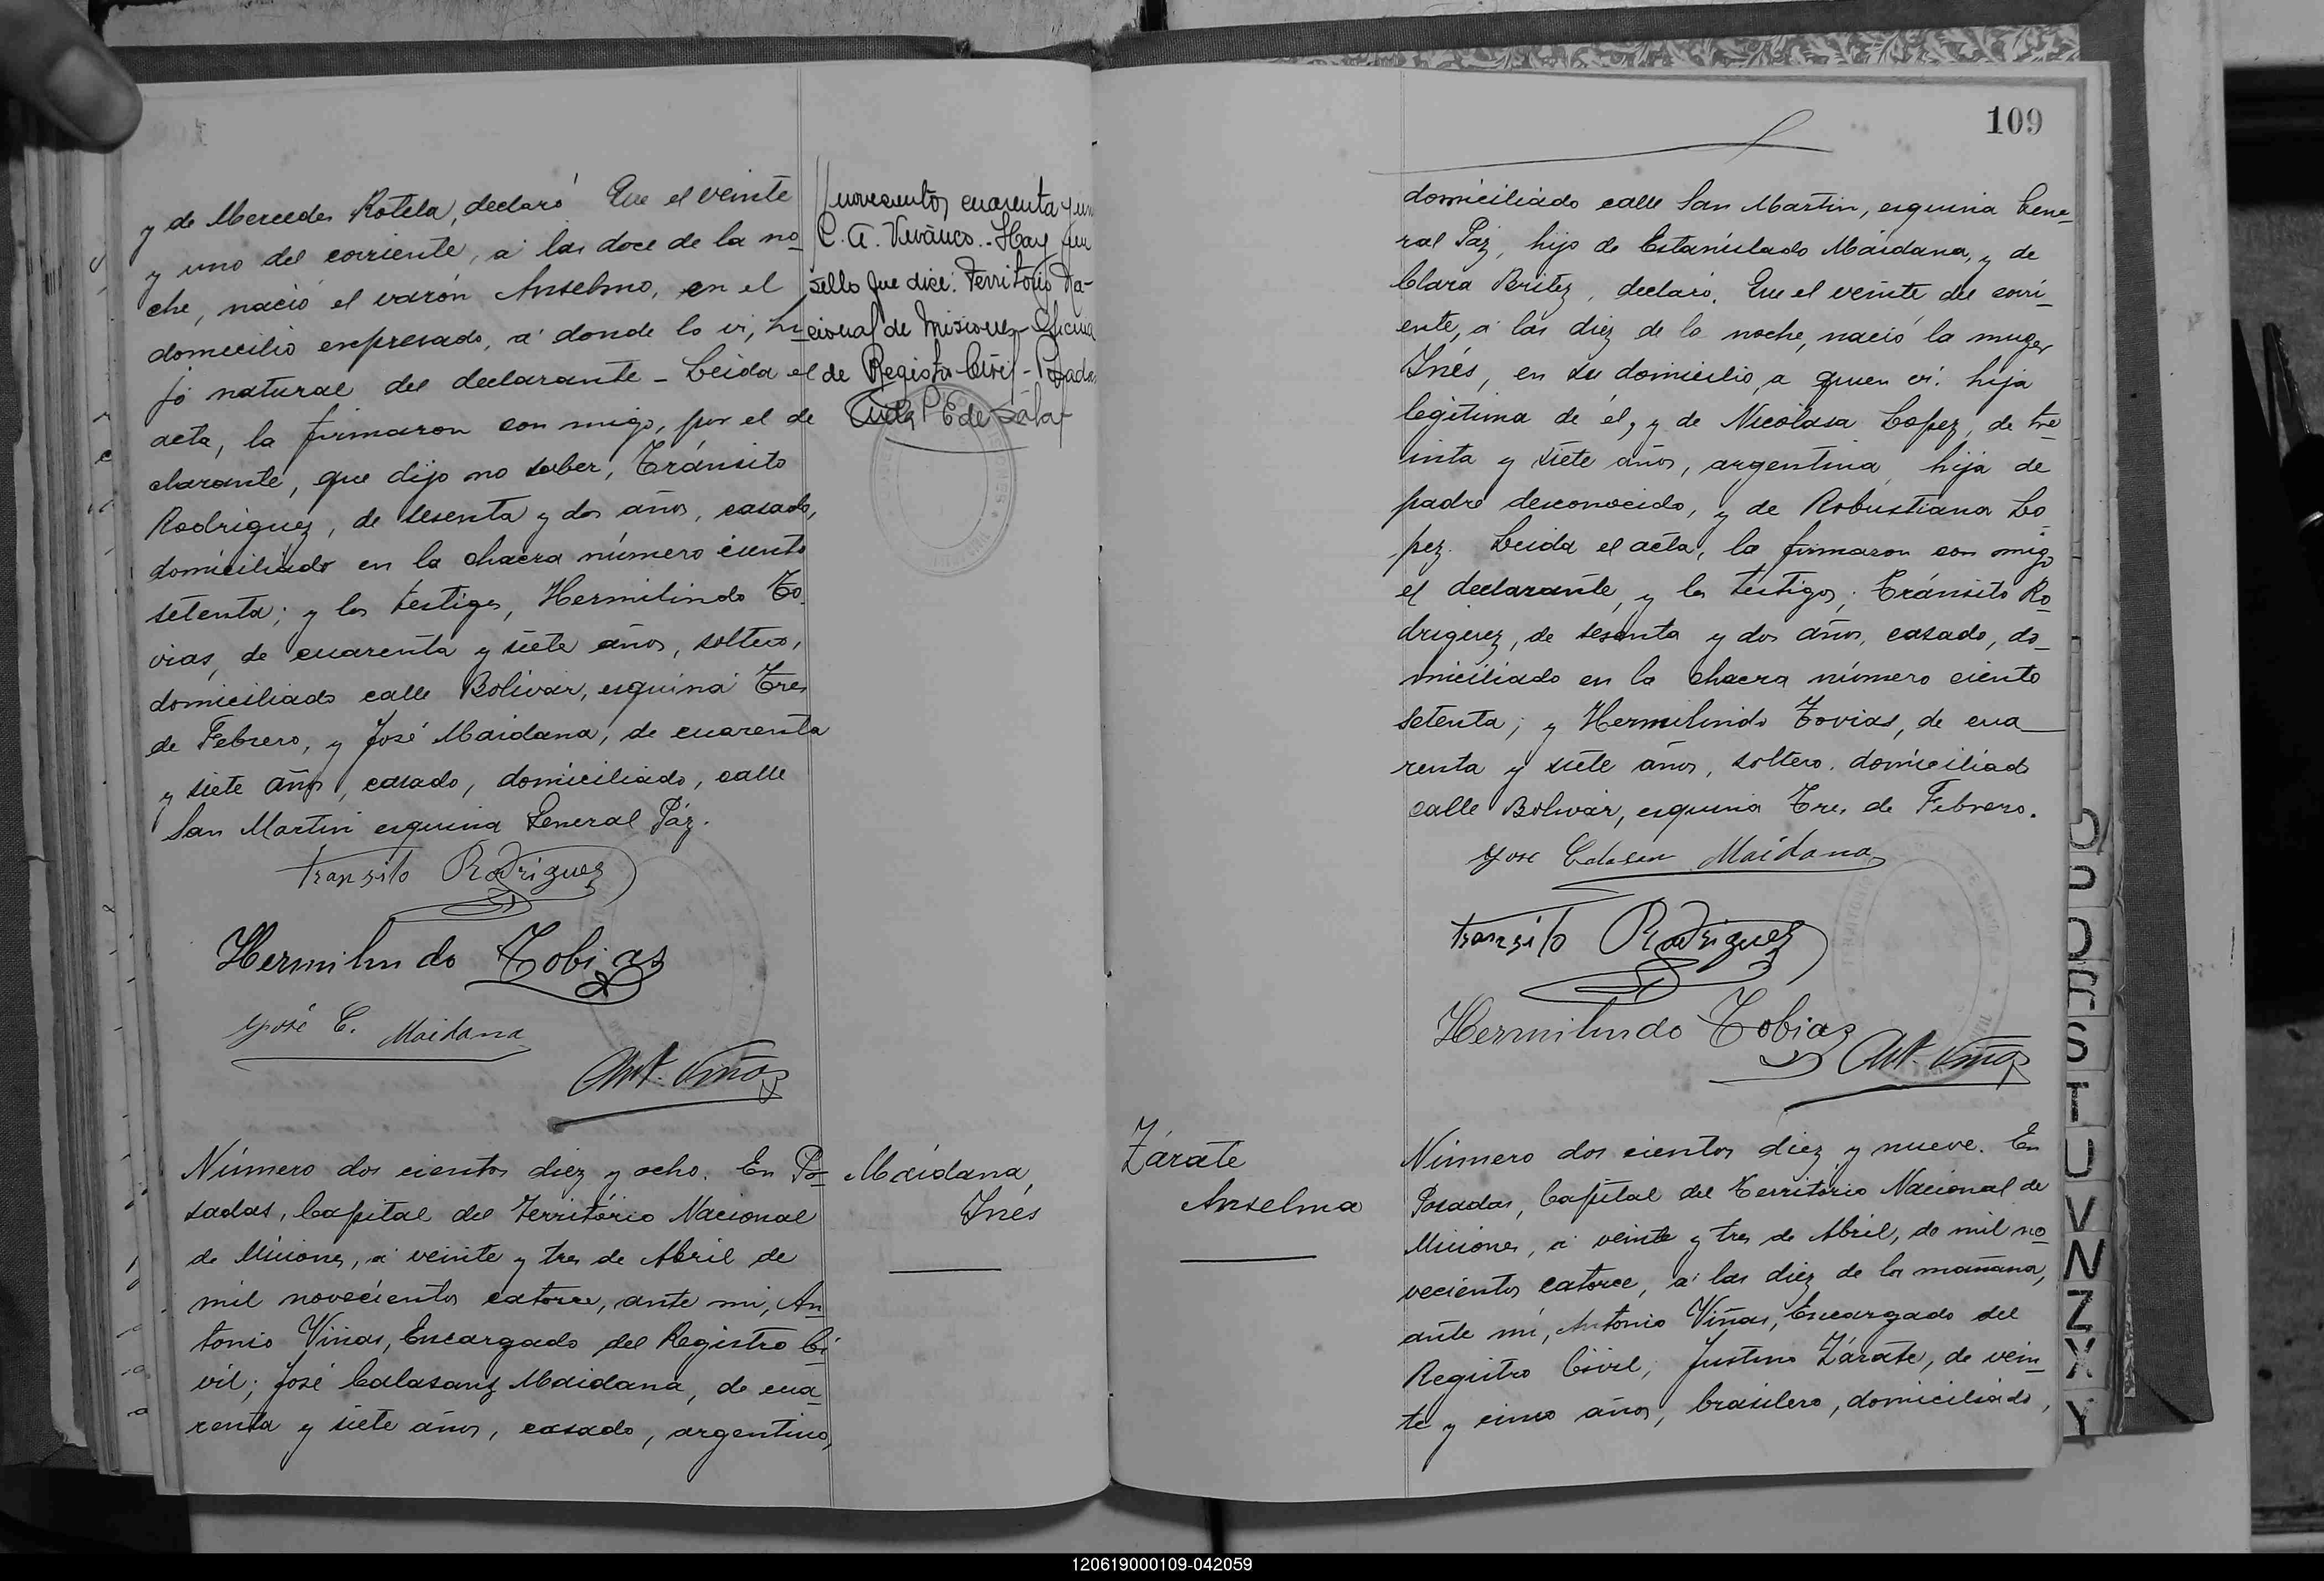 y de Mercedes Rotela, declaró Que el veinte
y uno del corriente, a las doce de la no-
che, nació el varón Anselmo, en el
domicilio expresado, a donde lo vi, hi-
jo natural del declarante - Leida el
acta, la firmaron con migo, por el de
clarante, que dijo no saber, Tránsito
Rodriguez, de sesenta y dos años, casado,
domiciliado en la chacra número ciento
setenta; y los testigos, Hermilindo To-
vias, de cuarenta y siete años, soltero,
domiciliado calle Bolivar, esquina Tres
de Febrero, y José Maidana, de cuarenta
y siete años, casado, domiciliado, calle
San Martin esquina General Páz.
Transito Rodriguez
Hermilindo Tobias
José C. Maidana
Ant. Viñas
novecientos cuarenta y un
C. A. Vivanco.- Hay un
sello que dice: Territorio Na-
cional de Misiones - Oficina
de Registro Civil - Posadas
Número dos cientos diez y ocho. En Po-
sadas, Capital del Território Nacional
de Misiones, a veinte y tres de Abril de
mil novecientos catorce, ante mi, An
tonio Viñas, Encargado del Registro Ci-
vil; José Calasanz Maidana, de cua-
renta y siete años, casado, argentino,
Maidana,
Inés
109
domiciliado calle San Martin, esquina Gene-
ral Páz, hijo de Estanislado Maidana, y de
Clara Britez, declaró. Que el veinte del corri-
ente, a las diez de la noche, nació la muger
Inés, en su domicilio, a quien vi: hija
legitima de él, y de Nicolasa Lopez, de tre-
inta y siete años, argentina, hija de
padre desconocido, y de Robustiana Lo-
pez. Leida el acta, la firmaron con migo
el declarante, y los testigos; Tránsito Ro-
driguez, de sesenta y dos años, casado, do-
miciliado en la chacra número ciento
setenta; y Hermilindo Tovias, de cua-
renta y siete años, soltero, domiciliado
calle Bolivar, esquina Tres de Febrero.
José Calasan Maidana
Transito Rodriguez
Hermilindo Tobias
Ant. Viñas
Zárate
Anselma
Número dos cientos diez y nueve. En
Posadas, Capital del Territorio Nacional de
Misiones, a veinte y tres de Abril, de mil no-
vecientos catorce, a las diez de la mañana,
ante mi, Antonio Viñas, Encargado del
Registro Civil; Justino Zárate, de vein-
te y cinco años, brasilero, domiciliado,
O
P
Q
R
S
T
U
V
N
Z
X
Y
120619000109-042059